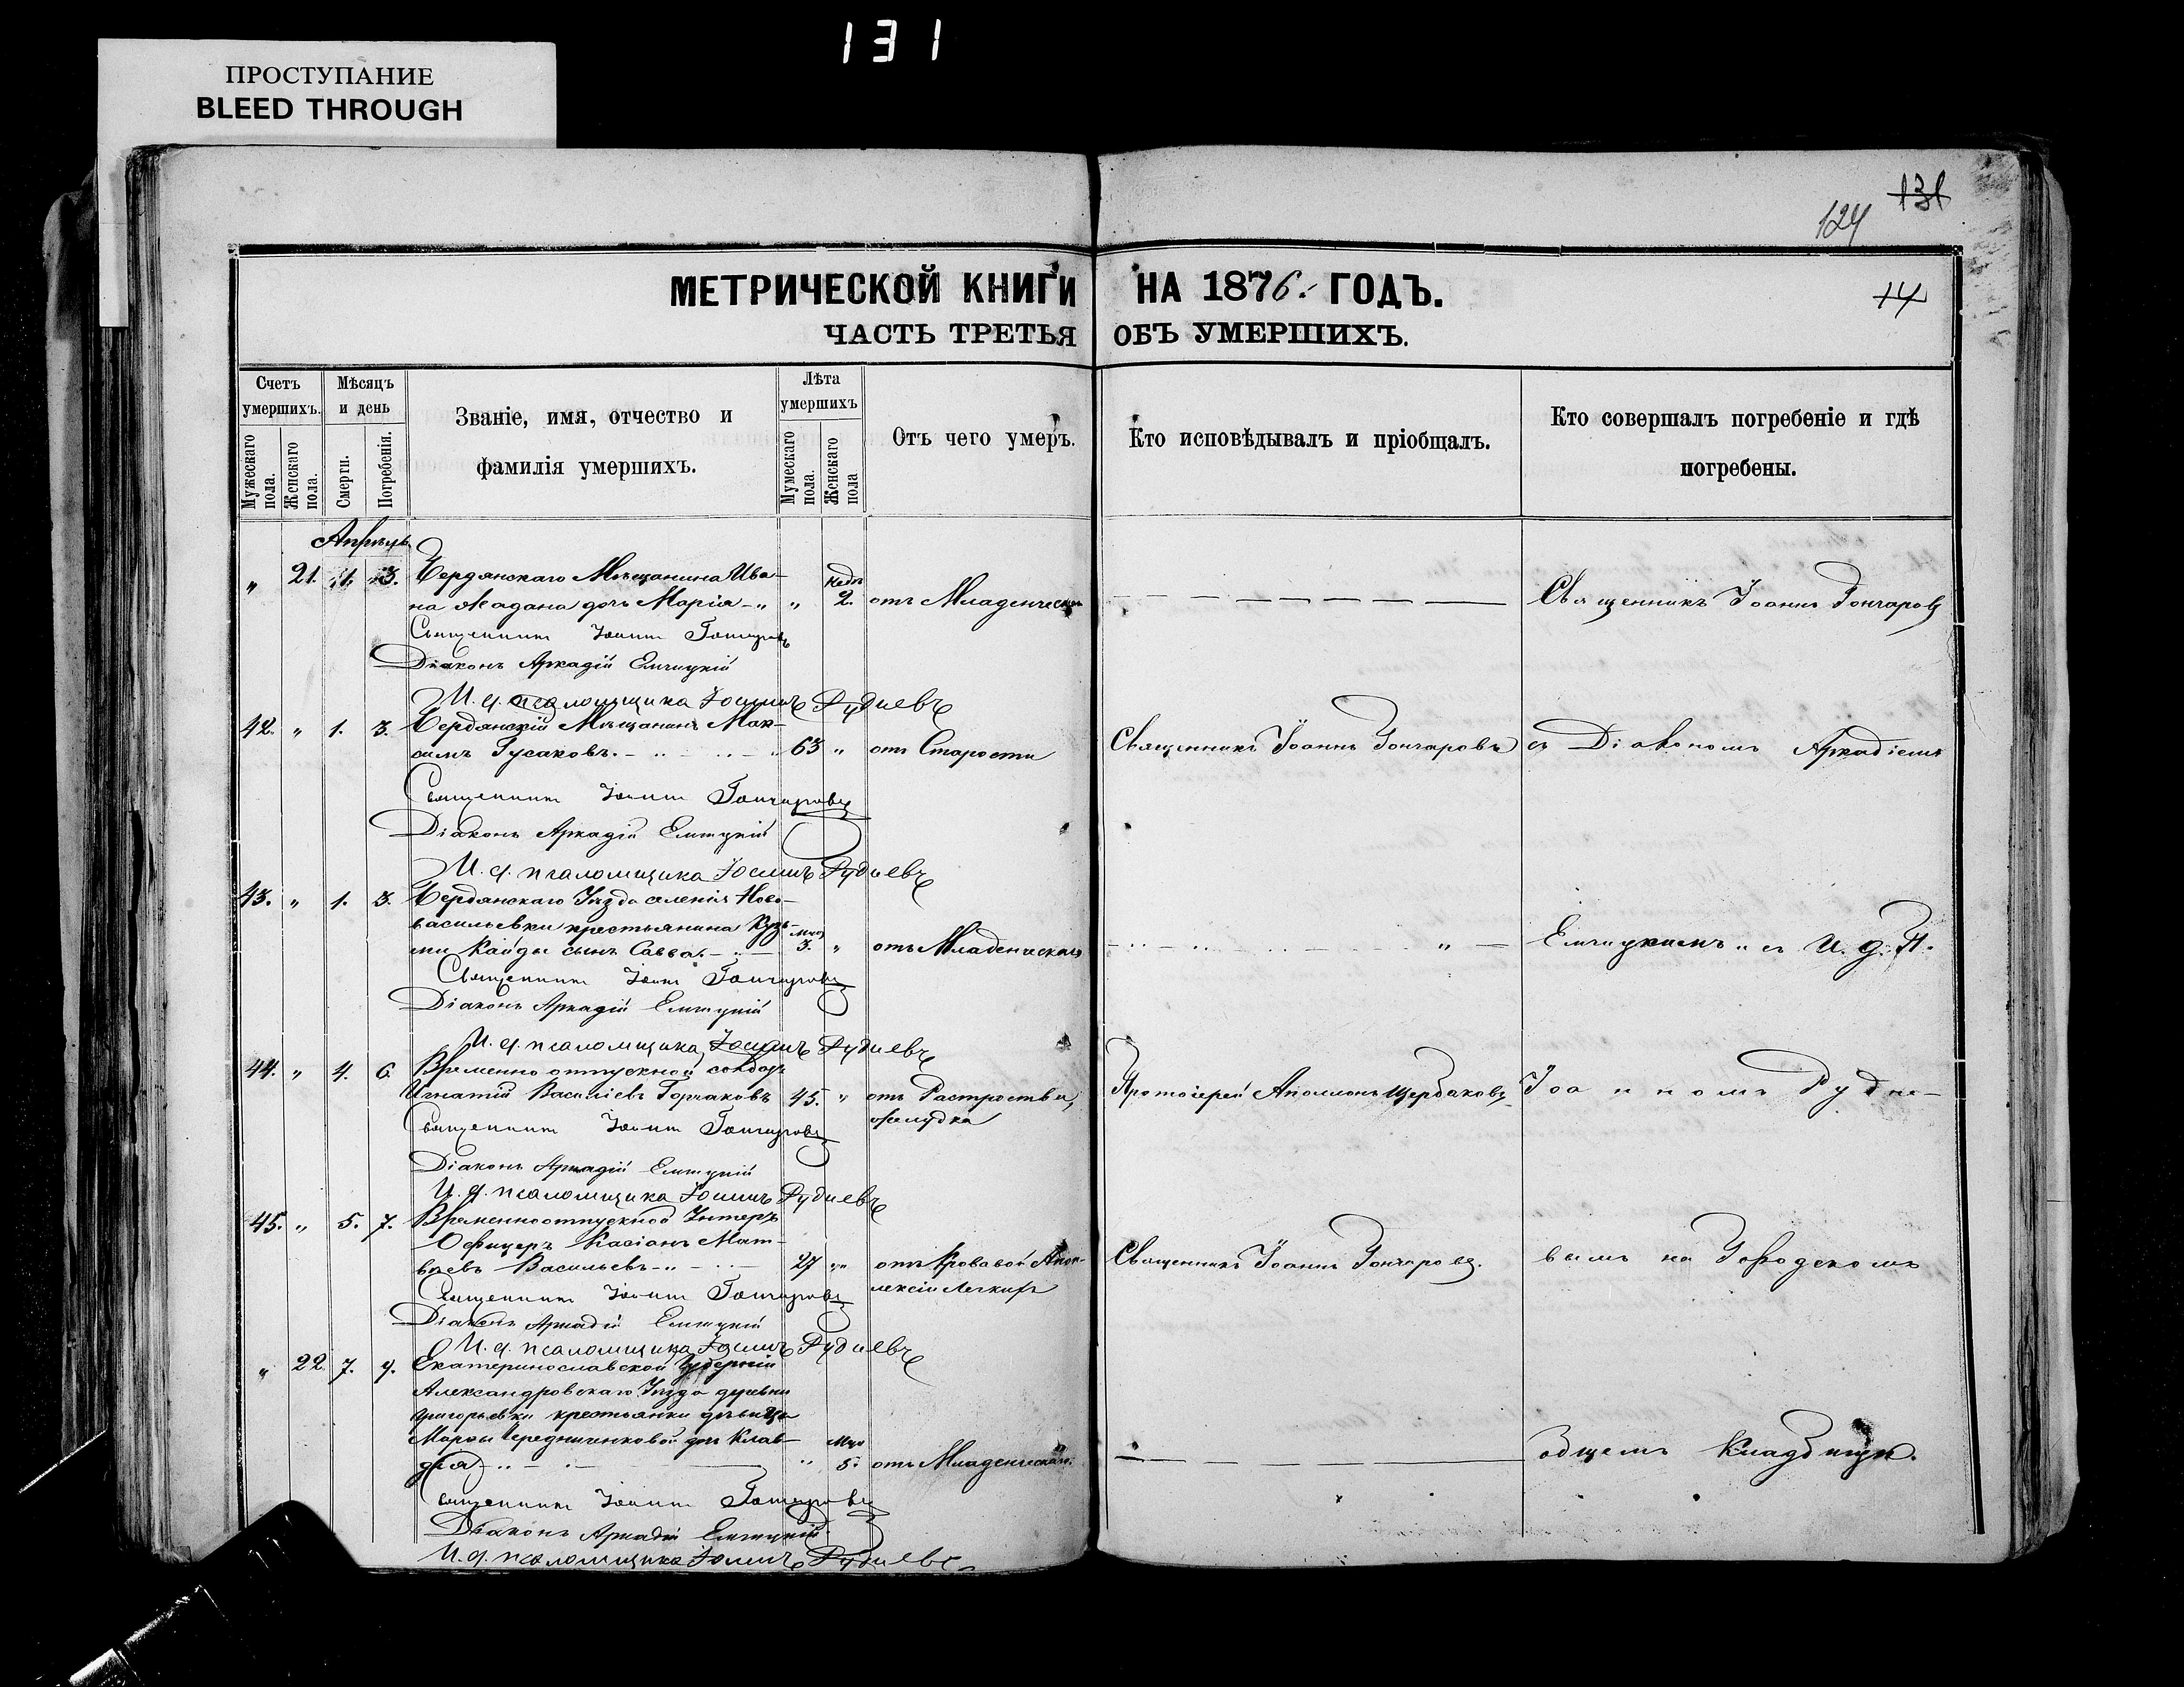 131
ПРОСТУПАНИЕ
BLEED THROUGH
131
124
МЕТРИЧЕСКОЙ КНИГИ НА 1876. ГОДЪ.
14
ЧАСТЬ ТРЕТЬЯ ОБЪ УМЕРШИХЪ.
Счетъ умершихъ.
Мужескаго пола.
Женскаго пола.
Мѣсяцъ и день
Смерти.
Погребенія.
Званіе, имя, отчество и
фамилія умершихъ.
Лѣта умершихъ
Мужескаго пола.
Женскаго пола
Отъ чего умеръ.
Кто исповѣдывалъ и пріобщалъ.
Кто совершалъ погребеніе и гдѣ
погребены.
Апрѣль
„ 21. 1. 3. Бердянскаго Мѣщанина Ива-
на Жадана дочь Марія „ „ недѣ 2. отъ Младенческаго Священникъ Іоаннъ Гончаровъ
Священникъ Іоаннъ Гончаровъ
Діаконъ Аркадій Емицкій
И. д. псаломщика Іоаннъ Рудневъ
42. „ 1. 3. Бердянскій Мѣщанинъ Мак-
симъ Гусаковъ. 63 „ отъ Старости Священникъ Іоаннъ Гончаровъ съ Діакономъ Аркадіемъ
Священникъ Іоаннъ Гончаровъ
Діаконъ Аркадій Емицкій
И. д. псаломщика Іоаннъ Рудневъ
43. „ 1. 3. Бердянскаго Уѣзда селенія Ново-
васильевки крестьянина Кузь-
мы Кайды сынъ Савва. мѣс 3. „ отъ Младенческаго „ Емицкимъ „ съ И. д. П.
Священникъ Іоаннъ Гончаровъ
Діаконъ Аркадій Емицкій
И. д. псаломщика Іоаннъ Рудневъ
44. „ 4. 6. Временно отпускной солдатъ
Игнатій Васильевъ Горчаковъ 45. „ отъ Разстройства Протоіерей Аполлонъ Щербаковъ Іоанномъ Рудне-
желудка
Священникъ Іоаннъ Гончаровъ
Діаконъ Аркадій Емицкій
И. д. псаломщика Іоаннъ Рудневъ
45. „ 5. 7. Временноотпускной Унтеръ
Офицеръ Касіанъ Мат-
вѣевъ Васильевъ 27 „ отъ Кровавой Апоп- Священникъ Іоаннъ Гончаровъ. вымъ на Городскомъ
лексіи Легкихъ
Священникъ Іоаннъ Гончаровъ
Діаконъ Аркадій Емицкій
И. д. псаломщика Іоаннъ Рудневъ
„ 22. 7. 9. Екатеринославской Губерніи
Александровскаго Уѣзда деревни
Григорьевки крестьянки дѣвицы
Марфы Чередниченковой дочь Клав-
дія „ Мѣс 5. отъ Младенческаго. общемъ Кладбищѣ.
Священникъ Іоаннъ Гончаровъ
Діаконъ Аркадій Емицкій
И. д. псаломщика Іоаннъ Рудневъ